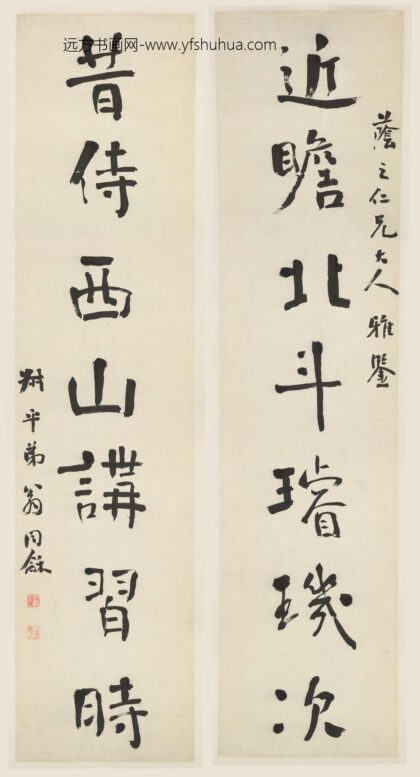 远方书画网-www.yfshuhua.com
蔭之仁兄大人雅鑒
近瞻北斗璿璣次
昔侍西山講習時
叔平弟翁同龢